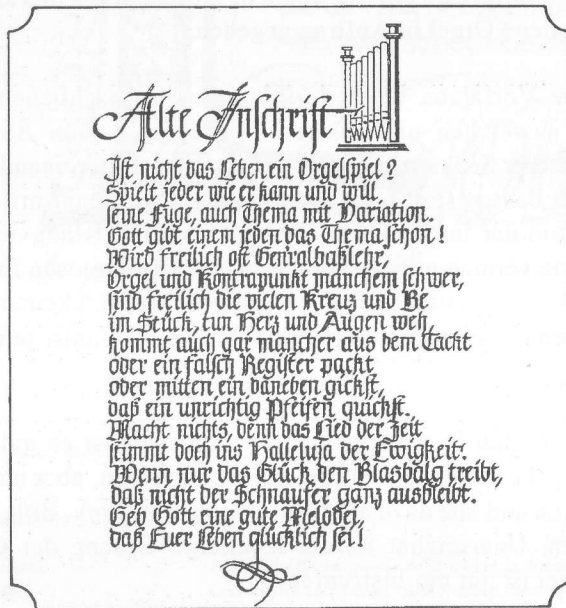 Alte Inschrift
Ist nicht das Leben ein Orgelspiel?
Spielt jeder wie er kann und will
seine Fuge, auch Thema mit Variation.
Gott gibt einem jeden das Thema schon!
Wird freilich oft Genralbaßlehr,
Orgel und Kontrapunkt manchem schwer,
sind freilich die vielen Kreuz und Be
im Stück, tun Herz und Augen weh,
kommt auch gar mancher aus dem Tackt
oder ein falsch Register packt
oder mitten ein daneben gickst,
daß ein unrichtig Pfeifen quickst.
Macht nichts, denn das Lied der Zeit
stimmt doch ins Halleluja der Ewigkeit.
Wenn nur das Glück den Blasbalg treibt,
daß nicht der Schnaufer ganz ausbleibt.
Geb Gott eine gute Melodei,
daß Euer Leben glücklich sei!